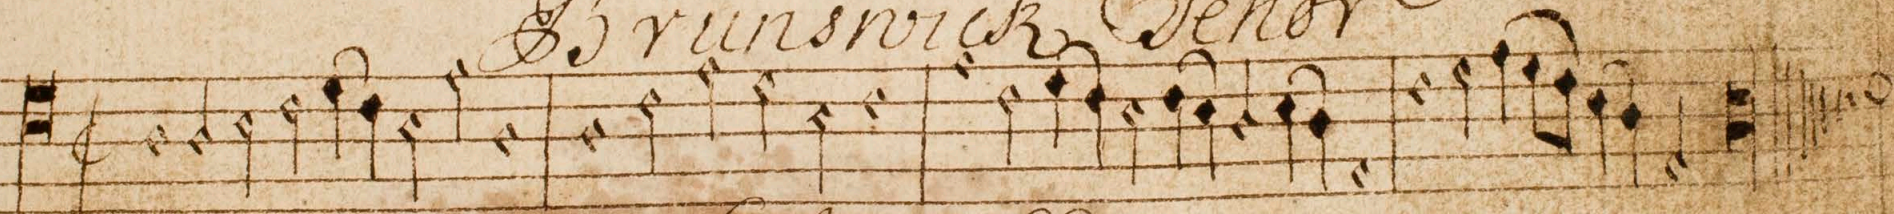 Brunswick Tenor